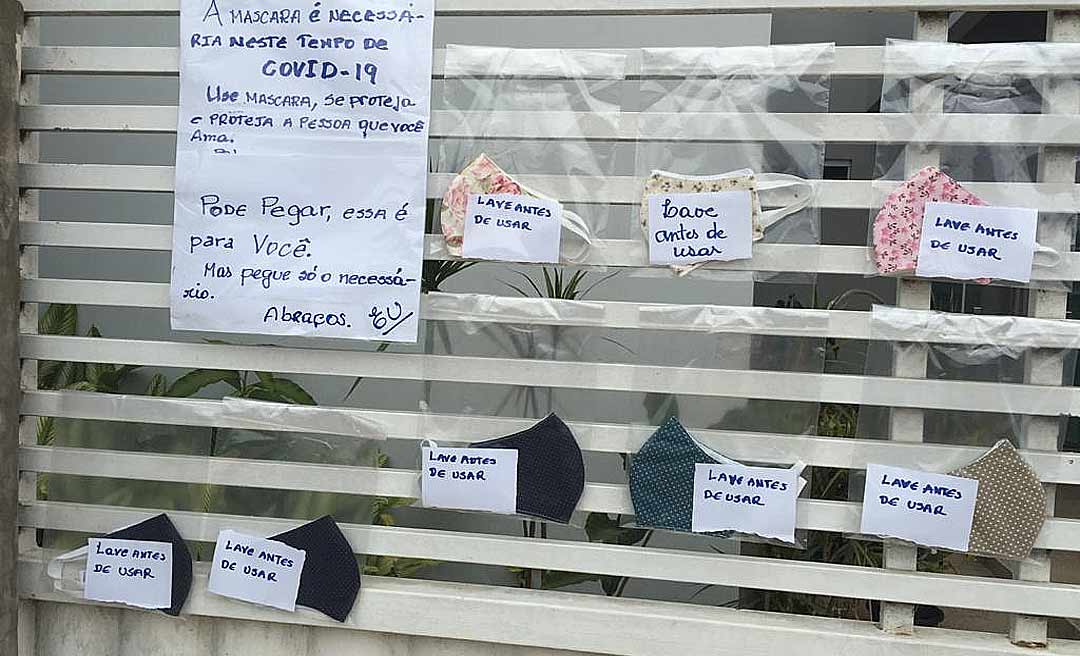 A MASCARA É NECESSÁ-
RIA NESTE TEMPO DE
COVID-19
Use MASCARA, se proteja
e PROTEJA A PESSOA que você
Ama.
Pode Pegar, essa é
para Você.
Mas pegue só o necessá-
rio.
Abraços.
LAVE ANTES
DE USAR
Lave
antes de
usar
LAVE ANTES
DE USAR
LAVE ANTES
DE USAR
LAVE ANTES
DE USAR
LAVE ANTES
DE USAR
LAVE ANTES
DE USAR
LAVE ANTES
DE USAR